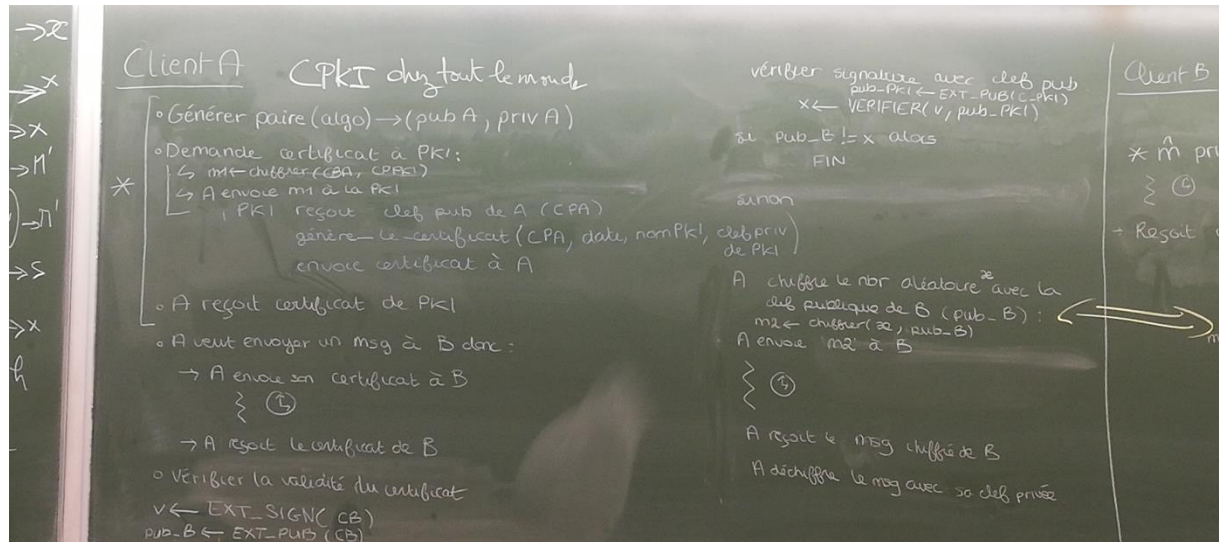 →x
→x
→x
→Π'
)→Π'
→S
→x
h
Client A CPKI chez tout le monde
* ∘ Générer paire (algo) → (pub A, priv A)
∘ Demande certificat à PKI:
↳ m1 ← chiffrer (CBA, CPPKI)
↳ A envoie m1 à la PKI
, PKI reçoit clef pub de A (CPA)
génère_le_certificat (CPA, date, nomPKI, clef priv de PKI)
envoie certificat à A
∘ A reçoit certificat de PKI
∘ A veut envoyer un msg à B donc:
→ A envoie son certificat à B
→ A reçoit le certificat de B
∘ Vérifier la validité du certificat
v ← EXT_SIGN( CB)
pub_B ← EXT_PUB (CB)
vérifier signature avec clef pub
pub_PKI ← EXT_PUB(C_PKI)
x ← VERIFIER(v, pub_PKI)
si pub_B != x alors
FIN
sinon
A chiffre le nbr aléatoire x avec la
clef publique de B (pub_B) :
m2 ← chiffrer(x, pub_B)
A envoie m2 à B
A reçoit le msg chiffré de B
A déchiffre le msg avec sa clef privée
Client B
* m̂ pri
- Reçoit
m